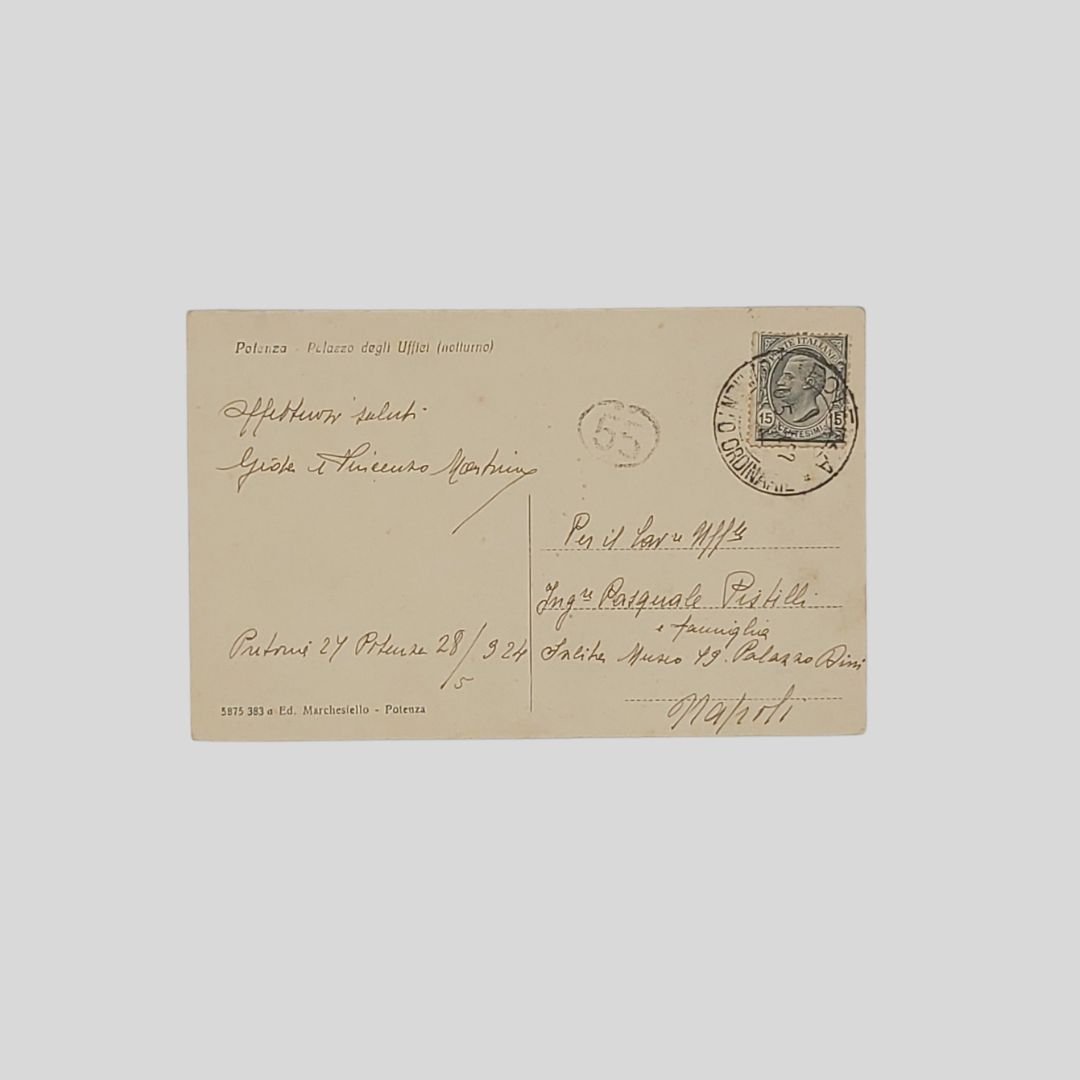 Potenza - Palazzo degli Uffici (notturno)
POSTE ITALIANE
15 CENTESIMI 15
ORDINARIE
55
Affettuosi saluti
e Vincenzo
Per il Cav.re Uff.le
Ing.re Pasquale Pistilli
e famiglia
Museo 49. Palazzo
Napoli
Pretoria 27 Potenza 28/5 924
5875 383 a Ed. Marchesiello - Potenza